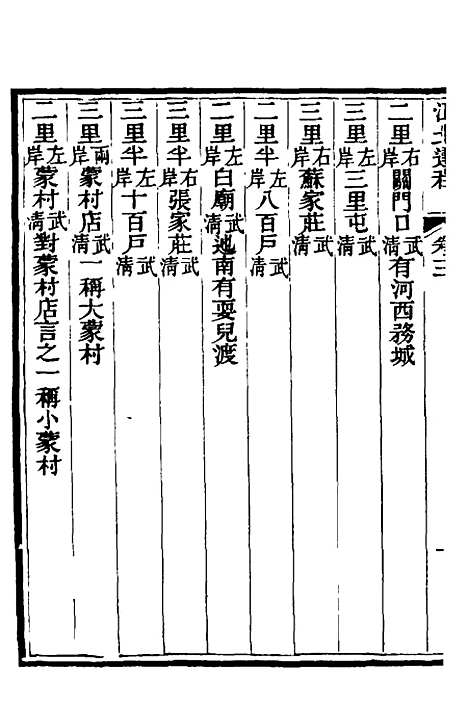 江北運程 卷三
二里右岸關門口武清有河西務城
三里左岸三里屯武清
三里右岸蘇家莊武清
二里半左岸八百戶武清
二里左岸白廟武清迤南有耍兒渡
三里半右岸張家莊武清
三里半左岸十百戶武清
三里兩岸蒙村店武清一稱大蒙村
二里左岸蒙村武清對蒙村店言之一稱小蒙村